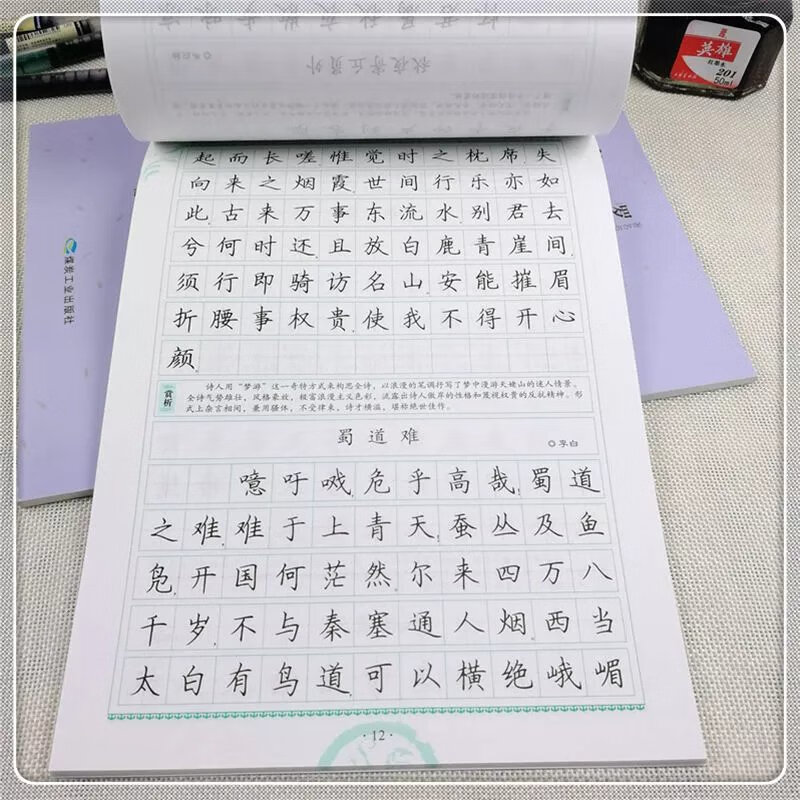 秋夜寄丘员外
英雄
红墨水
201
50ml
煤炭工业出版社
起而长嗟惟觉时之枕席失
向来之烟霞世间行乐亦如
此古来万事东流水别君去
兮何时还且放白鹿青崖间
须行即骑访名山安能摧眉
折腰事权贵使我不得开心
颜
赏析
诗人用“梦游”这一奇特方式来构思全诗，以浪漫的笔调行写了梦中漫游天姥山的迷人情景。
全诗气势雄壮，风格豪放，极富浪漫主义色彩，流露出诗人傲岸的性格和蔑视权贵的反抗精神。形
式上杂言相间，兼用骚体，不受律束，诗才横溢，堪称绝世佳作。
蜀道难
◎李白
噫吁戏危乎高哉蜀道
之难难于上青天蚕丛及鱼
凫开国何茫然尔来四万八
千岁不与秦塞通人烟西当
太白有鸟道可以横绝峨嵋
·12·